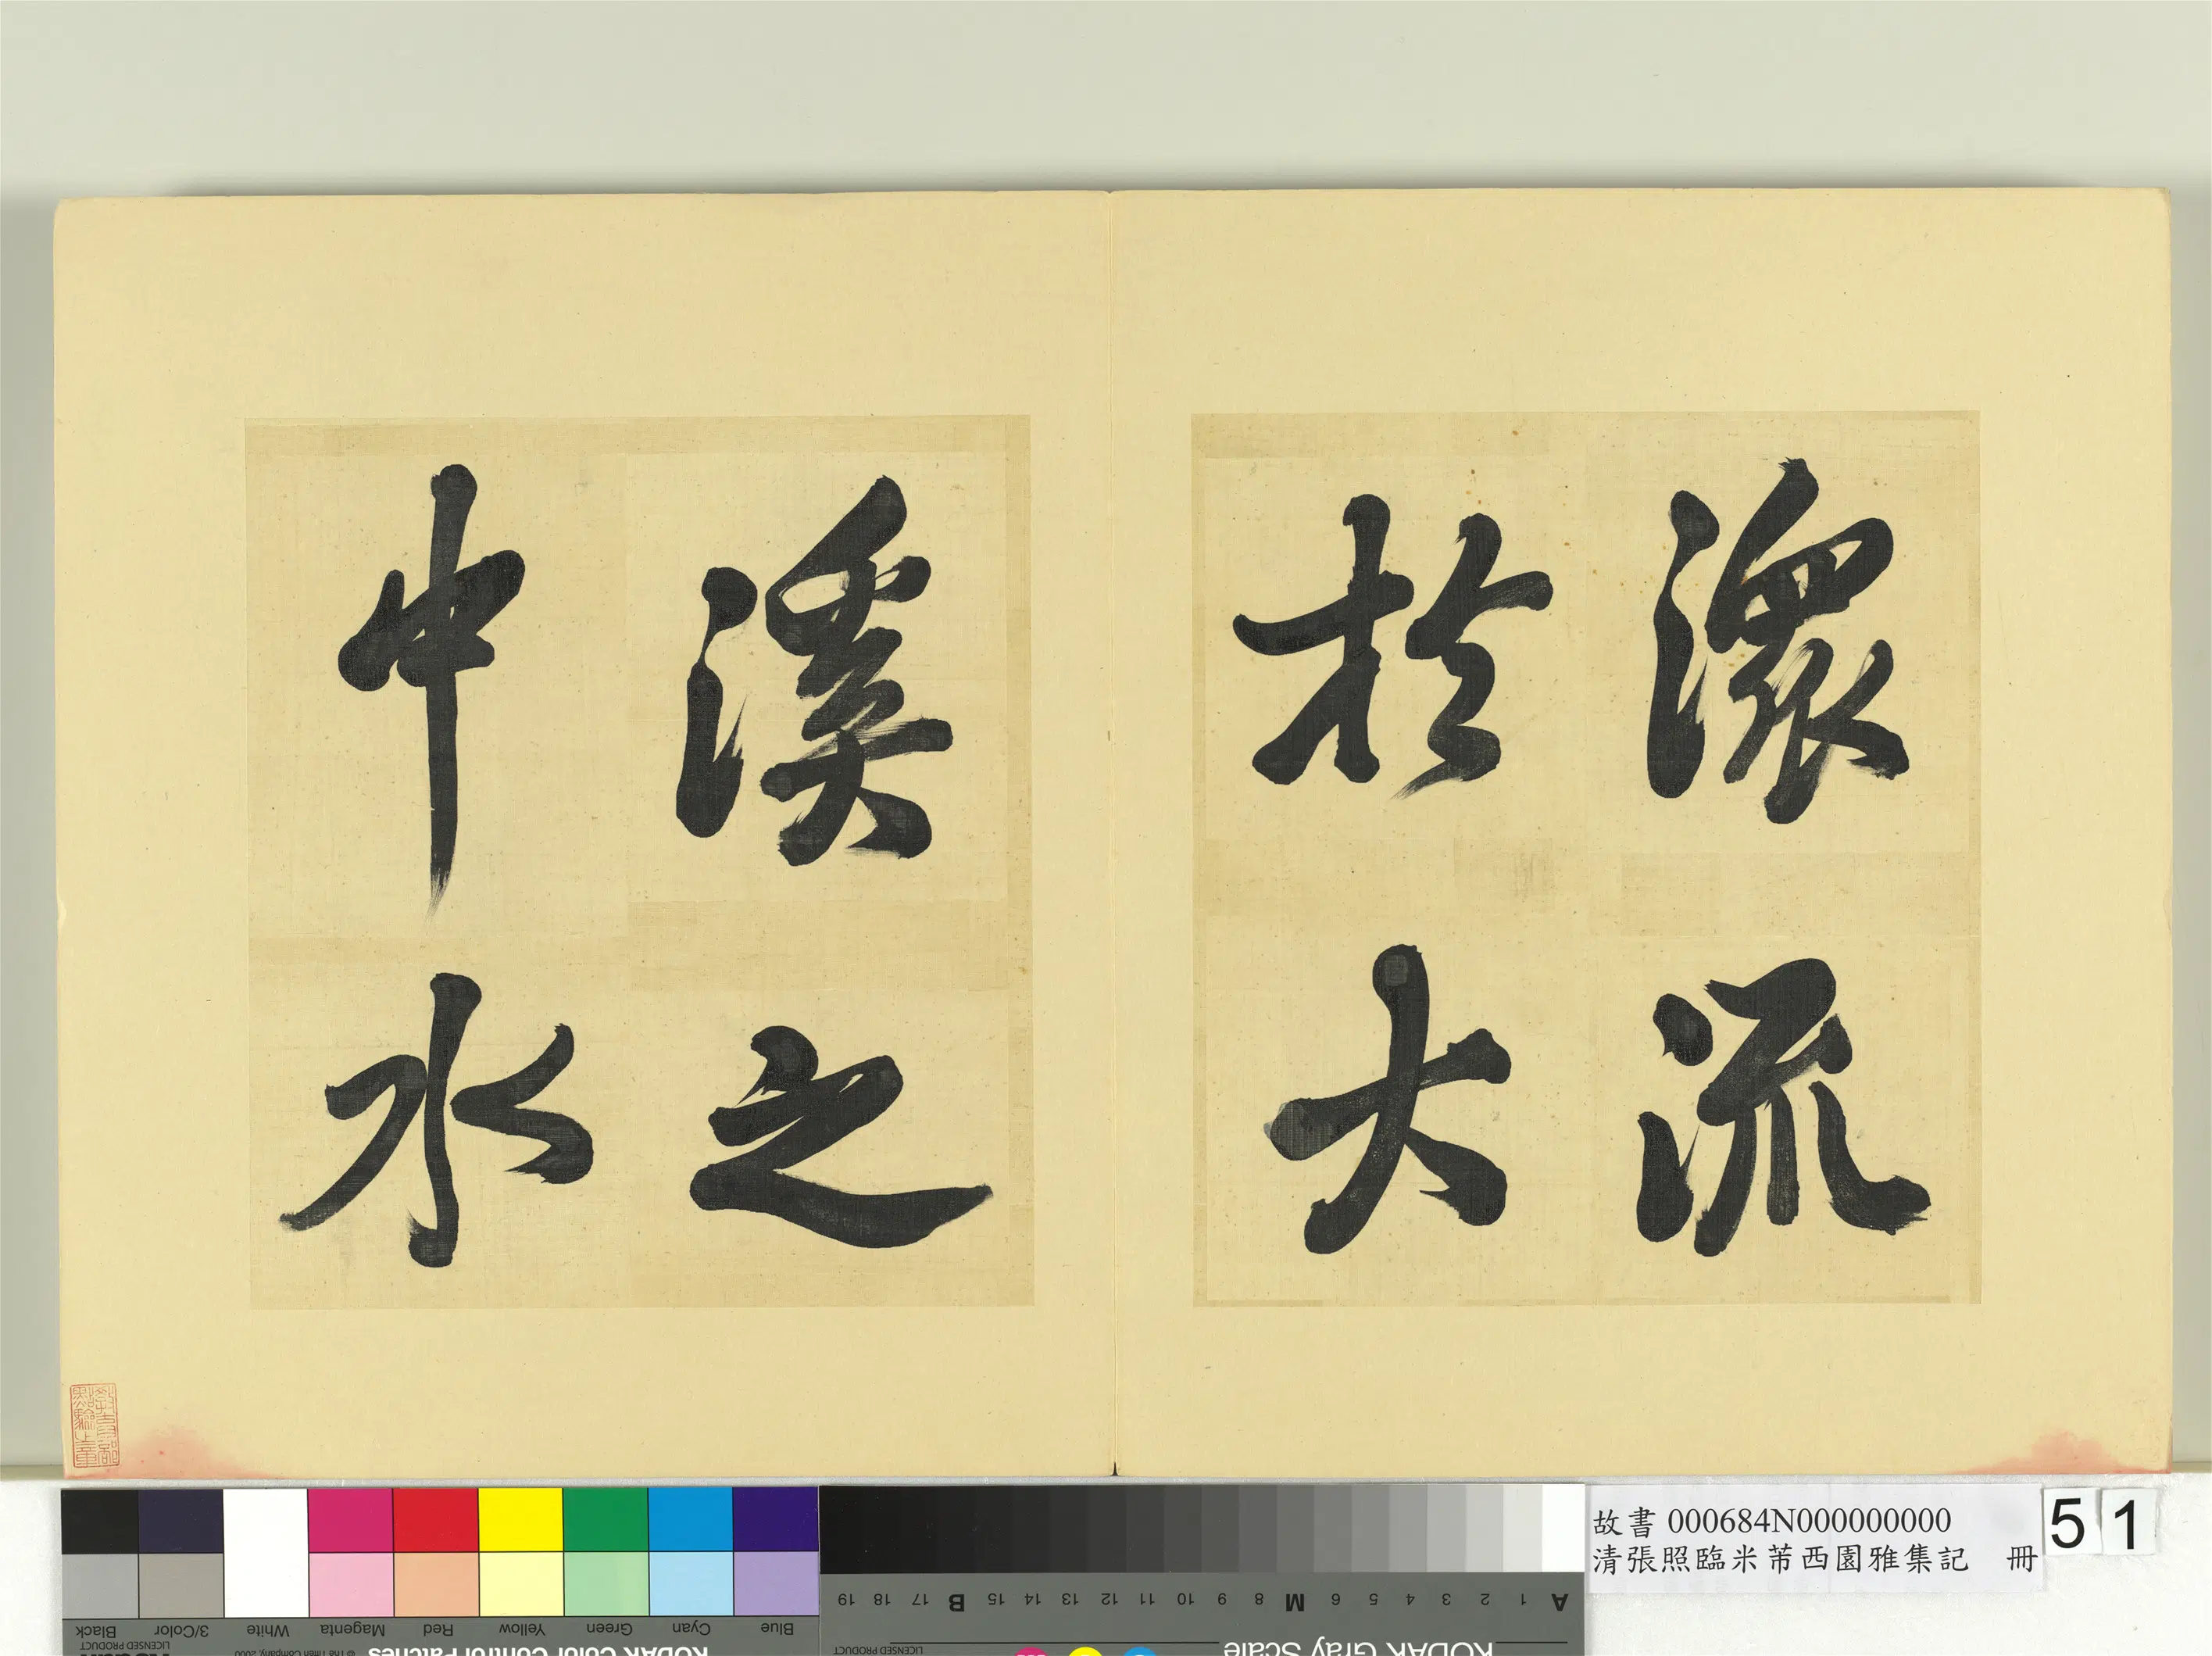 潨流
於大
溪之
中水
教育部
點驗之章
故書 000684N000000000
清張照臨米芾西園雅集記 冊
51
Blue Cyan Green Yellow Red Magenta White 3/Color Black
KODAK Color Control Patches
LICENSED PRODUCT
© The Tiffen Company, 2000
KODAK Gray Scale
LICENSED PRODUCT
A 1 2 3 4 5 6 M 8 9 10 11 12 13 14 15 B 17 18 19